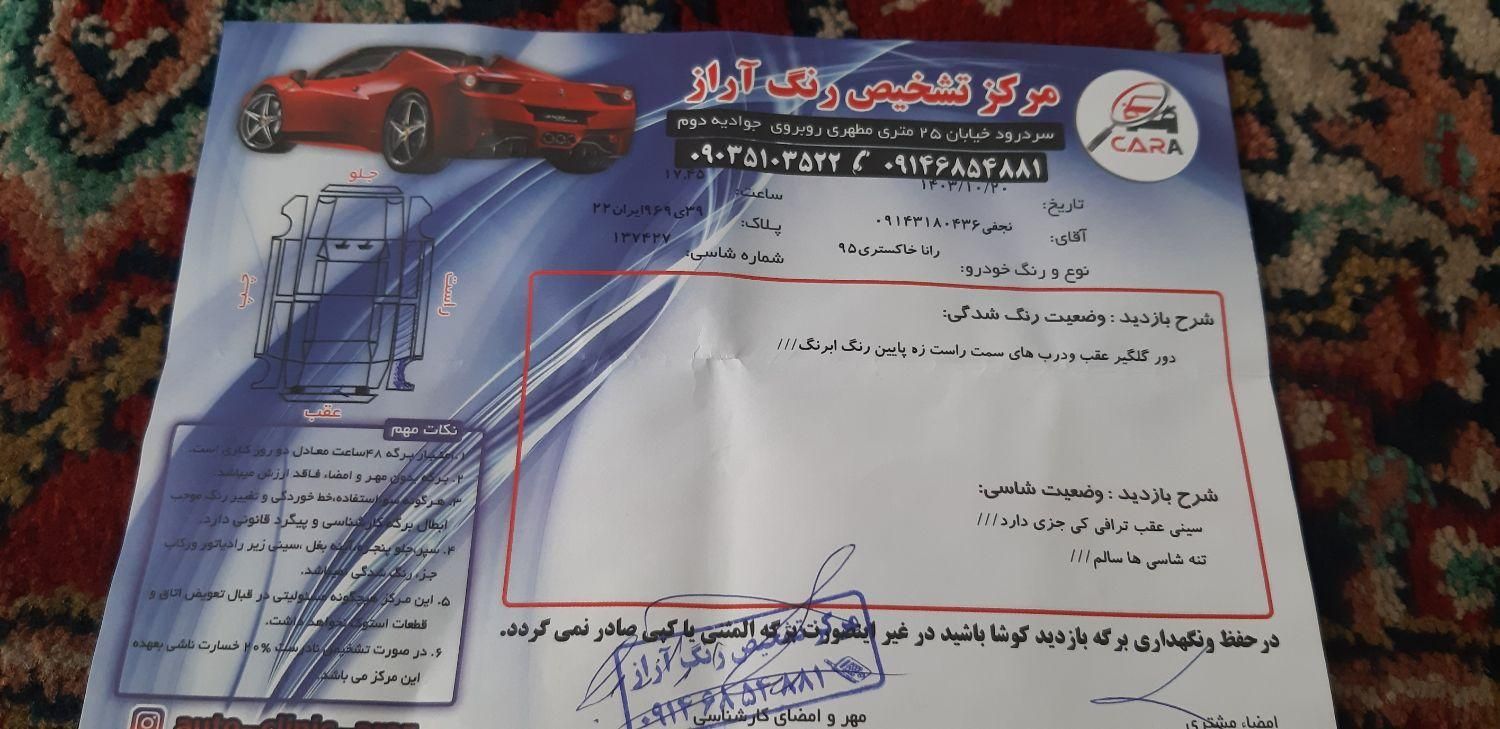 مرکز تشخیص رنگ آراز
CARA
سردرود خیابان ۲۵ متری مطهری روبروی جوادیه دوم
۰۹۱۴۶۸۵۴۸۸۱ ۰۹۰۳۵۱۰۳۵۲۲
تاریخ: ۱۴۰۳/۱۰/۲۰ ساعت: ۱۷.۴۵
آقای: نجفی۰۹۱۴۳۱۸۰۴۳۶ پلاک: ۳۹ی۹۶۹ایران۲۲
نوع و رنگ خودرو: رانا خاکستری۹۵ شماره شاسی: ۱۳۷۴۲۷
جلو
چپ
راست
عقب
شرح بازدید : وضعیت رنگ شدگی:
دور گلگیر عقب ودرب های سمت راست زه پایین رنگ ابرنگ///
شرح بازدید : وضعیت شاسی:
سینی عقب ترافی کی جزی دارد///
تنه شاسی ها سالم///
نکات مهم
۱. اعتبار برگه ۴۸ساعت معادل دو روز کاری است.
۲. برگه بدون مهر و امضاء فاقد ارزش میباشد.
۳. هرگونه سو استفاده،خط خوردگی و تغییر رنگ موجب
ابطال برگه کارشناسی و پیگرد قانونی دارد.
۴. سپر،جلو پنجره،آینه بغل ،سینی زیر رادیاتور ورکاب
جزء رنگ شدگی نمیباشد.
۵. این مرکز هیچگونه مسئولیتی در قبال تعویض اتاق و
قطعات استوک نخواهد داشت.
۶. در صورت تشخیص نادرست ۲۰% خسارت ناشی بعهده
این مرکز می باشد.
در حفظ ونگهداری برگه بازدید کوشا باشید در غیر اینصورت برگه المثنی یا کپی صادر نمی گردد.
مرکز تشخیص رنگ آراز
۰۹۱۴۶۸۵۴۸۸۱
مهر و امضای کارشناسی
امضاء مشتری